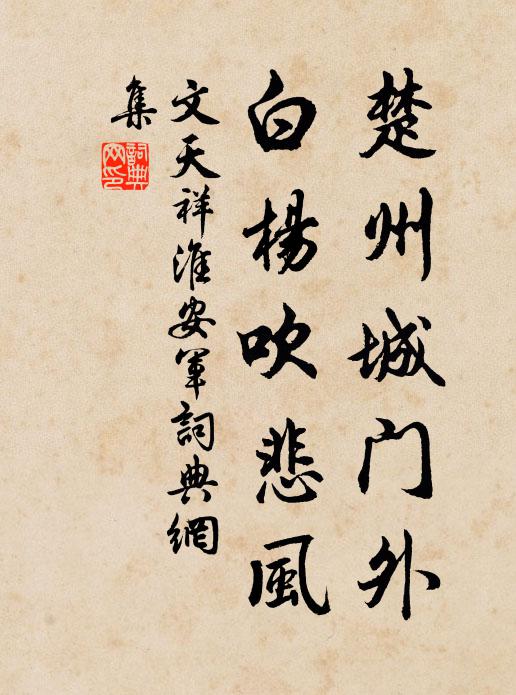 楚州城门外
白楊吹悲風
文天祥淮安軍詞典網
集
詞典
网印